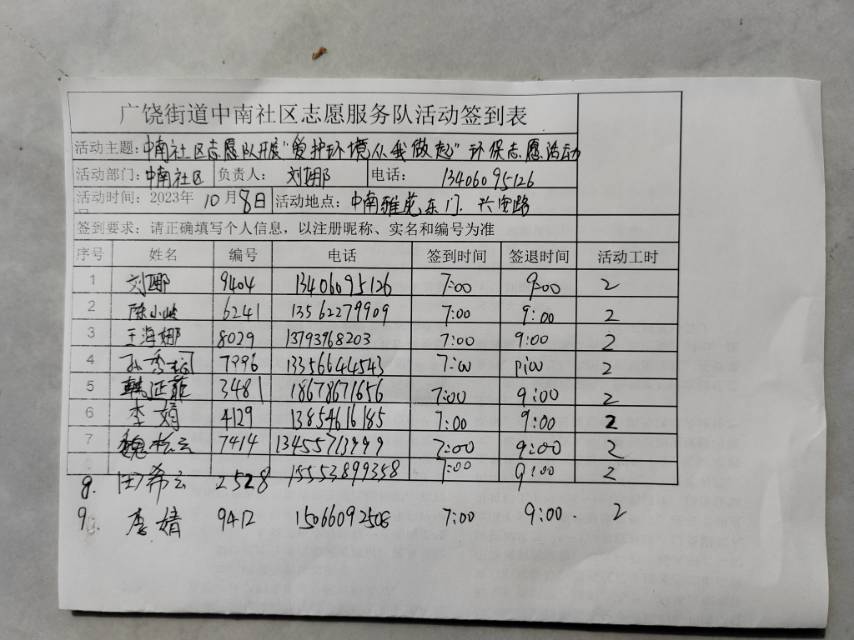 广饶街道中南社区志愿服务队活动签到表
活动主题:中南社区志愿队开展"爱护环境从我做起"环保志愿活动
活动部门:中南社区 负责人: 刘娜 电话: 13406095126
活动时间: 2023年10月8日 活动地点: 中南雅苑东门、兴安路
签到要求: 请正确填写个人信息，以注册昵称、实名和编号为准
序号 姓名 编号 电话 签到时间 签退时间 活动工时
1 刘娜 9404 13406095126 7:00 9:00 2
2 陈小 6241 13562279909 7:00 9:00 2
3 王海娜 8029 13793768203 7:00 9:00 2
4 孙秀 7996 13356644543 7:00 9:00 2
5 韩 3481 18678671656 7:00 9:00 2
6 李娟 4129 13854616185 7:00 9:00 2
7 魏松云 7414 13455713999 7:00 9:00 2
8. 田希云 2528 15553899358 7:00 9:00 2
9. 李婧 9412 15066092508 7:00 9:00. 2